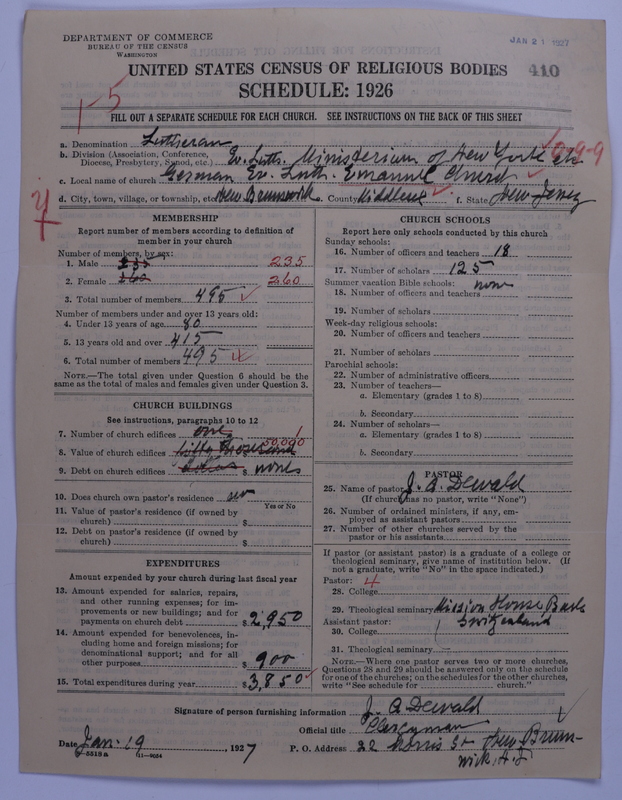 DEPARTMENT OF COMMERCE
BUREAU OF THE CENSUS
WASHINGTON
JAN 21 1927
410
UNITED STATES CENSUS OF RELIGIOUS BODIES
SCHEDULE: 1926
1-5
FILL OUT A SEPARATE SCHEDULE FOR EACH CHURCH. SEE INSTRUCTIONS ON THE BACK OF THIS SHEET
a. Denomination Lutheran
b. Division (Association, Conference, Diocese, Presbytery, Synod, etc.) Ev. Luth. Ministerium of New York etc
0-9-9
c. Local name of church German Ev. Luth. Emanuel Church
d. City, town, village, or township, etc. New Brunswick e. County Middlesex f. State New Jersey
MEMBERSHIP
Report number of members according to definition of
member in your church
Number of members, by sex:
1. Male 235 235
2. Female 260 260
3. Total number of members 495
Number of members under and over 13 years old:
4. Under 13 years of age 80
5. 13 years old and over 415
6. Total number of members 495
NOTE.—The total given under Question 6 should be the
same as the total of males and females given under Question 3.
CHURCH BUILDINGS
See instructions, paragraphs 10 to 12
7. Number of church edifices one 1
8. Value of church edifices fifty thousand 50,000
9. Debt on church edifices dollars $ none
10. Does church own pastor's residence no
Yes or No
11. Value of pastor's residence (if owned by
church) $
12. Debt on pastor's residence (if owned by
church) $
EXPENDITURES
Amount expended by your church during last fiscal year
13. Amount expended for salaries, repairs,
and other running expenses; for im-
provements or new buildings; and for
payments on church debt $ 2,950
14. Amount expended for benevolences, in-
cluding home and foreign missions; for
denominational support; and for all
other purposes $ 900
15. Total expenditures during year $ 3,850
CHURCH SCHOOLS
Report here only schools conducted by this church
Sunday schools:
16. Number of officers and teachers 18
17. Number of scholars 125
Summer vacation Bible schools: none
18. Number of officers and teachers
19. Number of scholars
Week-day religious schools:
20. Number of officers and teachers
21. Number of scholars
Parochial schools:
22. Number of administrative officers
23. Number of teachers—
a. Elementary (grades 1 to 8)
b. Secondary
24. Number of scholars—
a. Elementary (grades 1 to 8)
b. Secondary
PASTOR
25. Name of pastor J. A. Dewald
(If church has no pastor, write "None")
26. Number of ordained ministers, if any, em-
ployed as assistant pastors
27. Number of other churches served by the
pastor or his assistants
If pastor (or assistant pastor) is a graduate of a college or
theological seminary, give name of institution below. (If
not a graduate, write "No" in the space indicated.)
Pastor: 4
28. College
29. Theological seminary Mission House Basle
Assistant pastor: Switzerland
30. College
31. Theological seminary
NOTE.—Where one pastor serves two or more churches,
Questions 28 and 29 should be answered only on the schedule
for one of the churches; on the schedules for the other churches,
write "See schedule for church."
Signature of person furnishing information J. A. Dewald
Official title Clergyman
Date Jan. 19, 1927 P. O. Address 22 Morris St New Bruns-
wick, N.J.
5518 a 11-9024